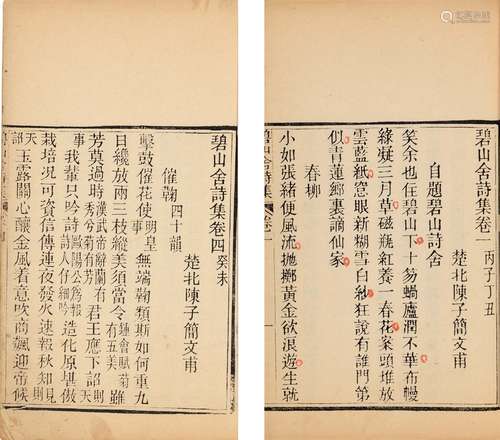 碧山舍詩集卷一 丙子丁丑
楚北陳子簡文甫
自題碧山詩舍
笑余也住碧山下十笏蝸廬潤不華布幔
綠凝三月草磁瓶紅養一春花案頭堆放
雲藍紙窓眼新糊雪白紗狂說有誰門第
似青蓮鄉裏謫仙家
春柳
小如張緒便風流拋擲黃金欲浪遊生就
碧山舍詩集 卷一
碧山舍詩集卷四 癸未
楚北陳子簡文甫
催鞠 四十韻
擊鼓催花使 明皇事 無端鞠類斯如何重九
目纔放兩三枝縱美須當令 鍾會賦菊有五美 雖
芳莫過時 漢武帝辭蘭有秀兮菊有芳 君王應下詔 則天
事 我輩只吟詩 歐陽公爲報詩人仔細吟 造化原堪做
栽培況可資信傳連夜發火速報秋知 則見
天詔 玉露關心釀金風着意吹商飆迎帝候